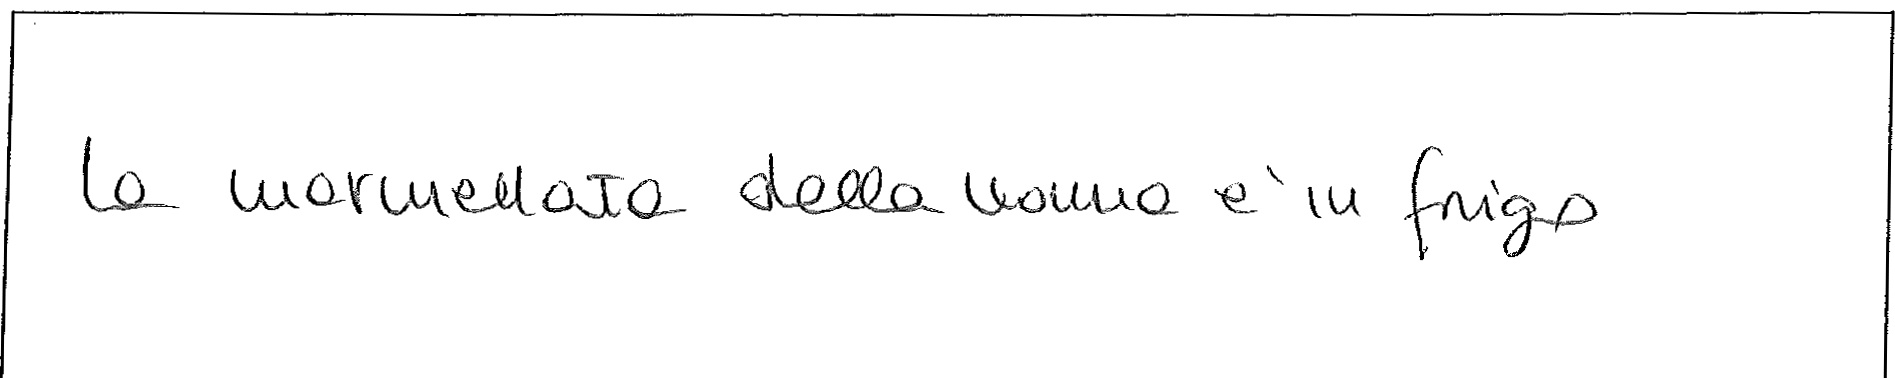 la marmellata della nonna è in frigo